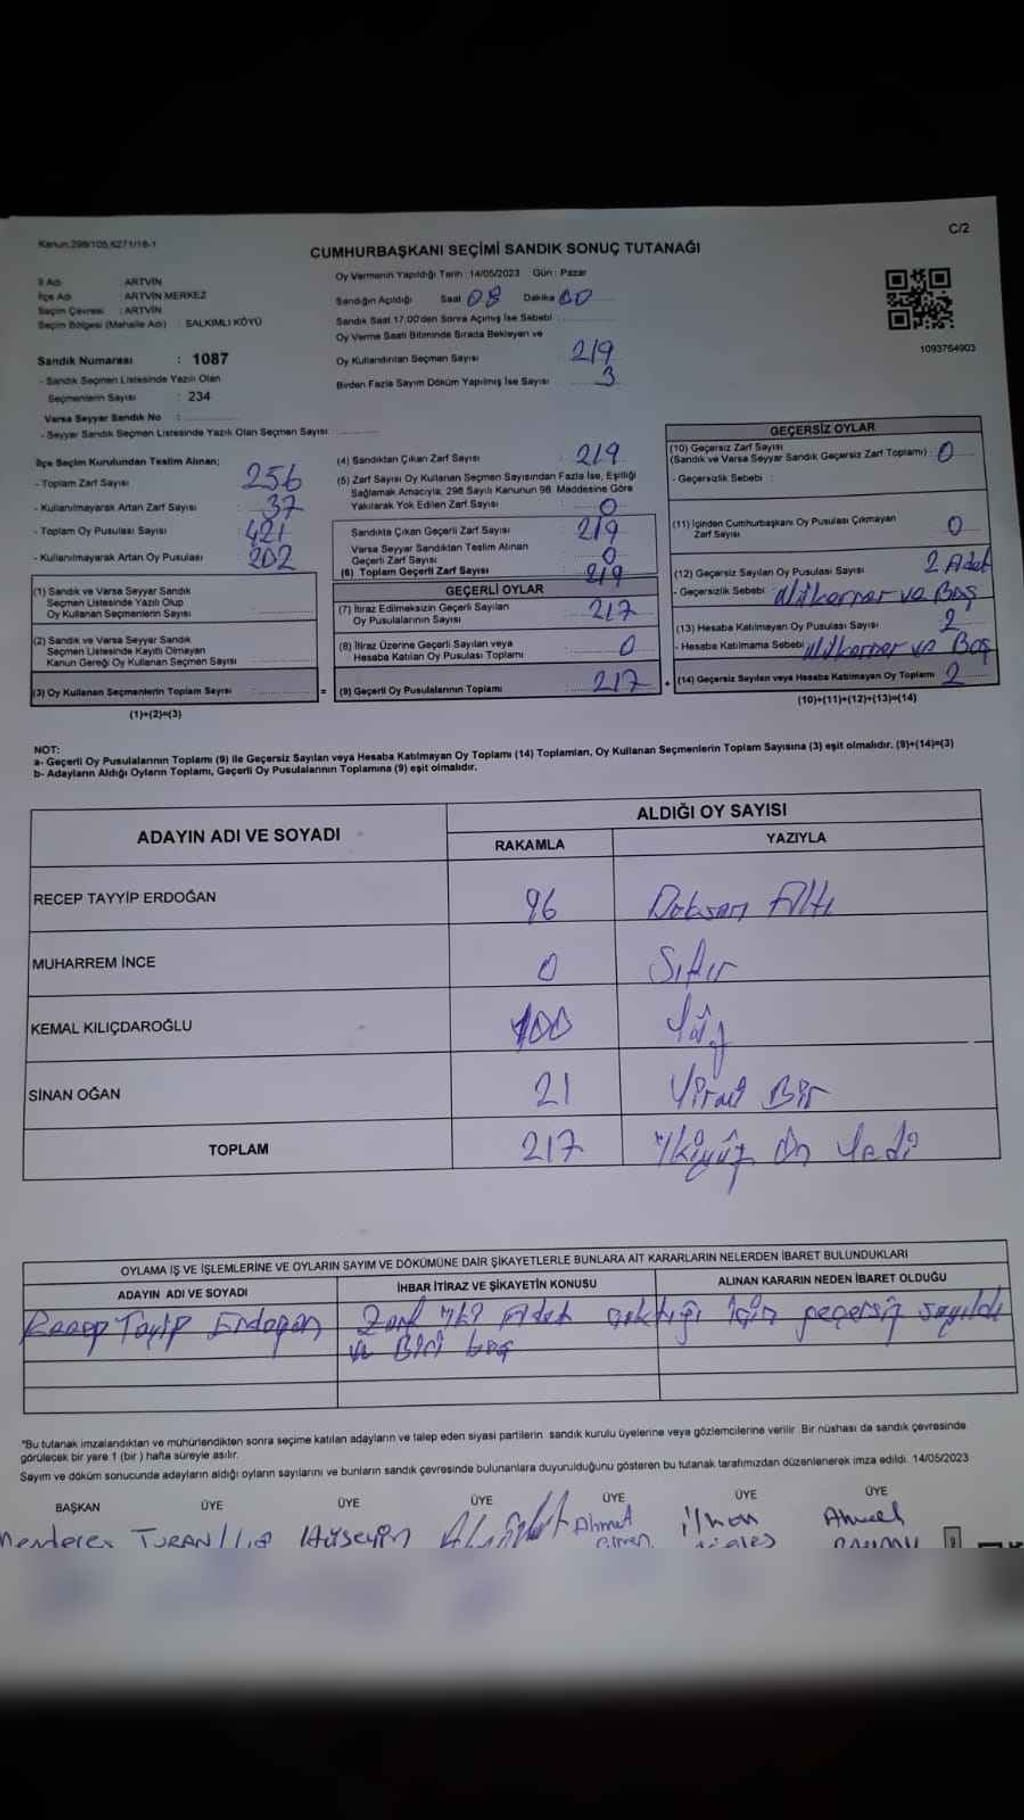 Kanun:298/105,6271/16-1
C/2
CUMHURBAŞKANI SEÇİMİ SANDIK SONUÇ TUTANAĞI
İl Adı : ARTVİN
İlçe Adı : ARTVİN MERKEZ
Seçim Çevresi : ARTVİN
Seçim Bölgesi (Mahalle Adı) : SALKIMLI KÖYÜ
Sandık Numarası : 1087
- Sandık Seçmen Listesinde Yazılı Olan
Seçmenlerin Sayısı : 234
Varsa Seyyar Sandık No :
- Seyyar Sandık Seçmen Listesinde Yazılı Olan Seçmen Sayısı
Oy Vermenin Yapıldığı Tarih :14/05/2023 Gün : Pazar
Sandığın Açıldığı Saat 08 Dakika 00
Sandık Saat 17:00'den Sonra Açılmış İse Sebebi
Oy Verme Saati Bitiminde Sırada Bekleyen ve
Oy Kullandırılan Seçmen Sayısı 219
Birden Fazla Sayım Döküm Yapılmış İse Sayısı 3
1093764903
İlçe Seçim Kurulundan Teslim Alınan;
- Toplam Zarf Sayısı 256
- Kullanılmayarak Artan Zarf Sayısı 37
- Toplam Oy Pusulası Sayısı 421
- Kullanılmayarak Artan Oy Pusulası 202
(1) Sandık ve Varsa Seyyar Sandık
Seçmen Listesinde Yazılı Olup
Oy Kullanan Seçmenlerin Sayısı
(2) Sandık ve Varsa Seyyar Sandık
Seçmen Listesinde Kayıtlı Olmayan
Kanun Gereği Oy Kullanan Seçmen Sayısı
(3) Oy Kullanan Seçmenlerin Toplam Sayısı =
(1)+(2)=(3)
(4) Sandıktan Çıkan Zarf Sayısı 219
(5) Zarf Sayısı Oy Kullanan Seçmen Sayısından Fazla İse, Eşitliği
Sağlamak Amacıyla, 298 Sayılı Kanunun 98. Maddesine Göre
Yakılarak Yok Edilen Zarf Sayısı 0
Sandıkta Çıkan Geçerli Zarf Sayısı 219
Varsa Seyyar Sandıktan Teslim Alınan
Geçerli Zarf Sayısı 0
(6) Toplam Geçerli Zarf Sayısı 219
GEÇERLİ OYLAR
(7) İtiraz Edilmeksizin Geçerli Sayılan
Oy Pusulalarının Sayısı 217
(8) İtiraz Üzerine Geçerli Sayılan veya
Hesaba Katılan Oy Pusulası Toplamı 0
(9) Geçerli Oy Pusulalarının Toplamı 217 +
GEÇERSİZ OYLAR
(10) Geçersiz Zarf Sayısı
(Sandık ve Varsa Seyyar Sandık Geçersiz Zarf Toplamı) : 0
- Geçersizlik Sebebi :
(11) İçinden Cumhurbaşkanı Oy Pusulası Çıkmayan
Zarf Sayısı 0
(12) Geçersiz Sayılan Oy Pusulası Sayısı 2 Adet
- Geçersizlik Sebebi ve Boş
(13) Hesaba Katılmayan Oy Pusulası Sayısı 2
- Hesaba Katılmama Sebebi ve Boş
(14) Geçersiz Sayılan veya Hesaba Katılmayan Oy Toplamı 2
(10)+(11)+(12)+(13)=(14)
NOT:
a- Geçerli Oy Pusulalarının Toplamı (9) ile Geçersiz Sayılan veya Hesaba Katılmayan Oy Toplamı (14) Toplamları, Oy Kullanan Seçmenlerin Toplam Sayısına (3) eşit olmalıdır. (9)+(14)=(3)
b- Adayların Aldığı Oyların Toplamı, Geçerli Oy Pusulalarının Toplamına (9) eşit olmalıdır.
ADAYIN ADI VE SOYADI
ALDIĞI OY SAYISI
RAKAMLA YAZIYLA
RECEP TAYYİP ERDOĞAN 96 Doksan Altı
MUHARREM İNCE 0 Sıfır
KEMAL KILIÇDAROĞLU 100 Yüz
SİNAN OĞAN 21 Yirmi Bir
TOPLAM 217 İkiyüz On Yedi
OYLAMA İŞ VE İŞLEMLERİNE VE OYLARIN SAYIM VE DÖKÜMÜNE DAİR ŞİKAYETLERLE BUNLARA AİT KARARLARIN NELERDEN İBARET BULUNDUKLARI
ADAYIN ADI VE SOYADI İHBAR İTİRAZ VE ŞİKAYETİN KONUSU ALINAN KARARIN NEDEN İBARET OLDUĞU
Recep Tayip Erdogan Adet çıktığı için geçersiz sayıldı
ve Biri boş
"Bu tutanak imzalandıktan ve mühürlendikten sonra seçime katılan adayların ve talep eden siyasi partilerin sandık kurulu üyelerine veya gözlemcilerine verilir. Bir nüshası da sandık çevresinde
görülecek bir yere 1 (bir ) hafta süreyle asılır.
Sayım ve döküm sonucunda adayların aldığı oyların sayılarını ve bunların sandık çevresinde bulunanlara duyurulduğunu gösteren bu tutanak tarafımızdan düzenlenerek imza edildi. 14/05/2023
BAŞKAN ÜYE ÜYE ÜYE ÜYE ÜYE ÜYE
Menderes TURAN Hüseyin Ahmet ilhan Ahmet